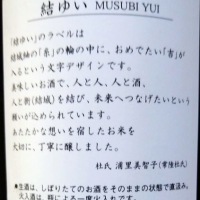 結ゆい MUSUBI YUI
「結ゆい」のラベルは
結城紬の「糸」の輪の中に、おめでたい「吉」が
入るという文字デザインです。
美味しいお酒で、人と人、人と酒、
人と街(結城)を結び、未来へつなげたいという
願いが込められています。
あたたかな想いを宿したお米を
大切に、丁寧に醸しました。
杜氏 浦里美智子(常陸杜氏)
●生酒は、しぼりたてのお酒をそのままの状態で直汲み。
火入酒は、瓶による一度火入れです。